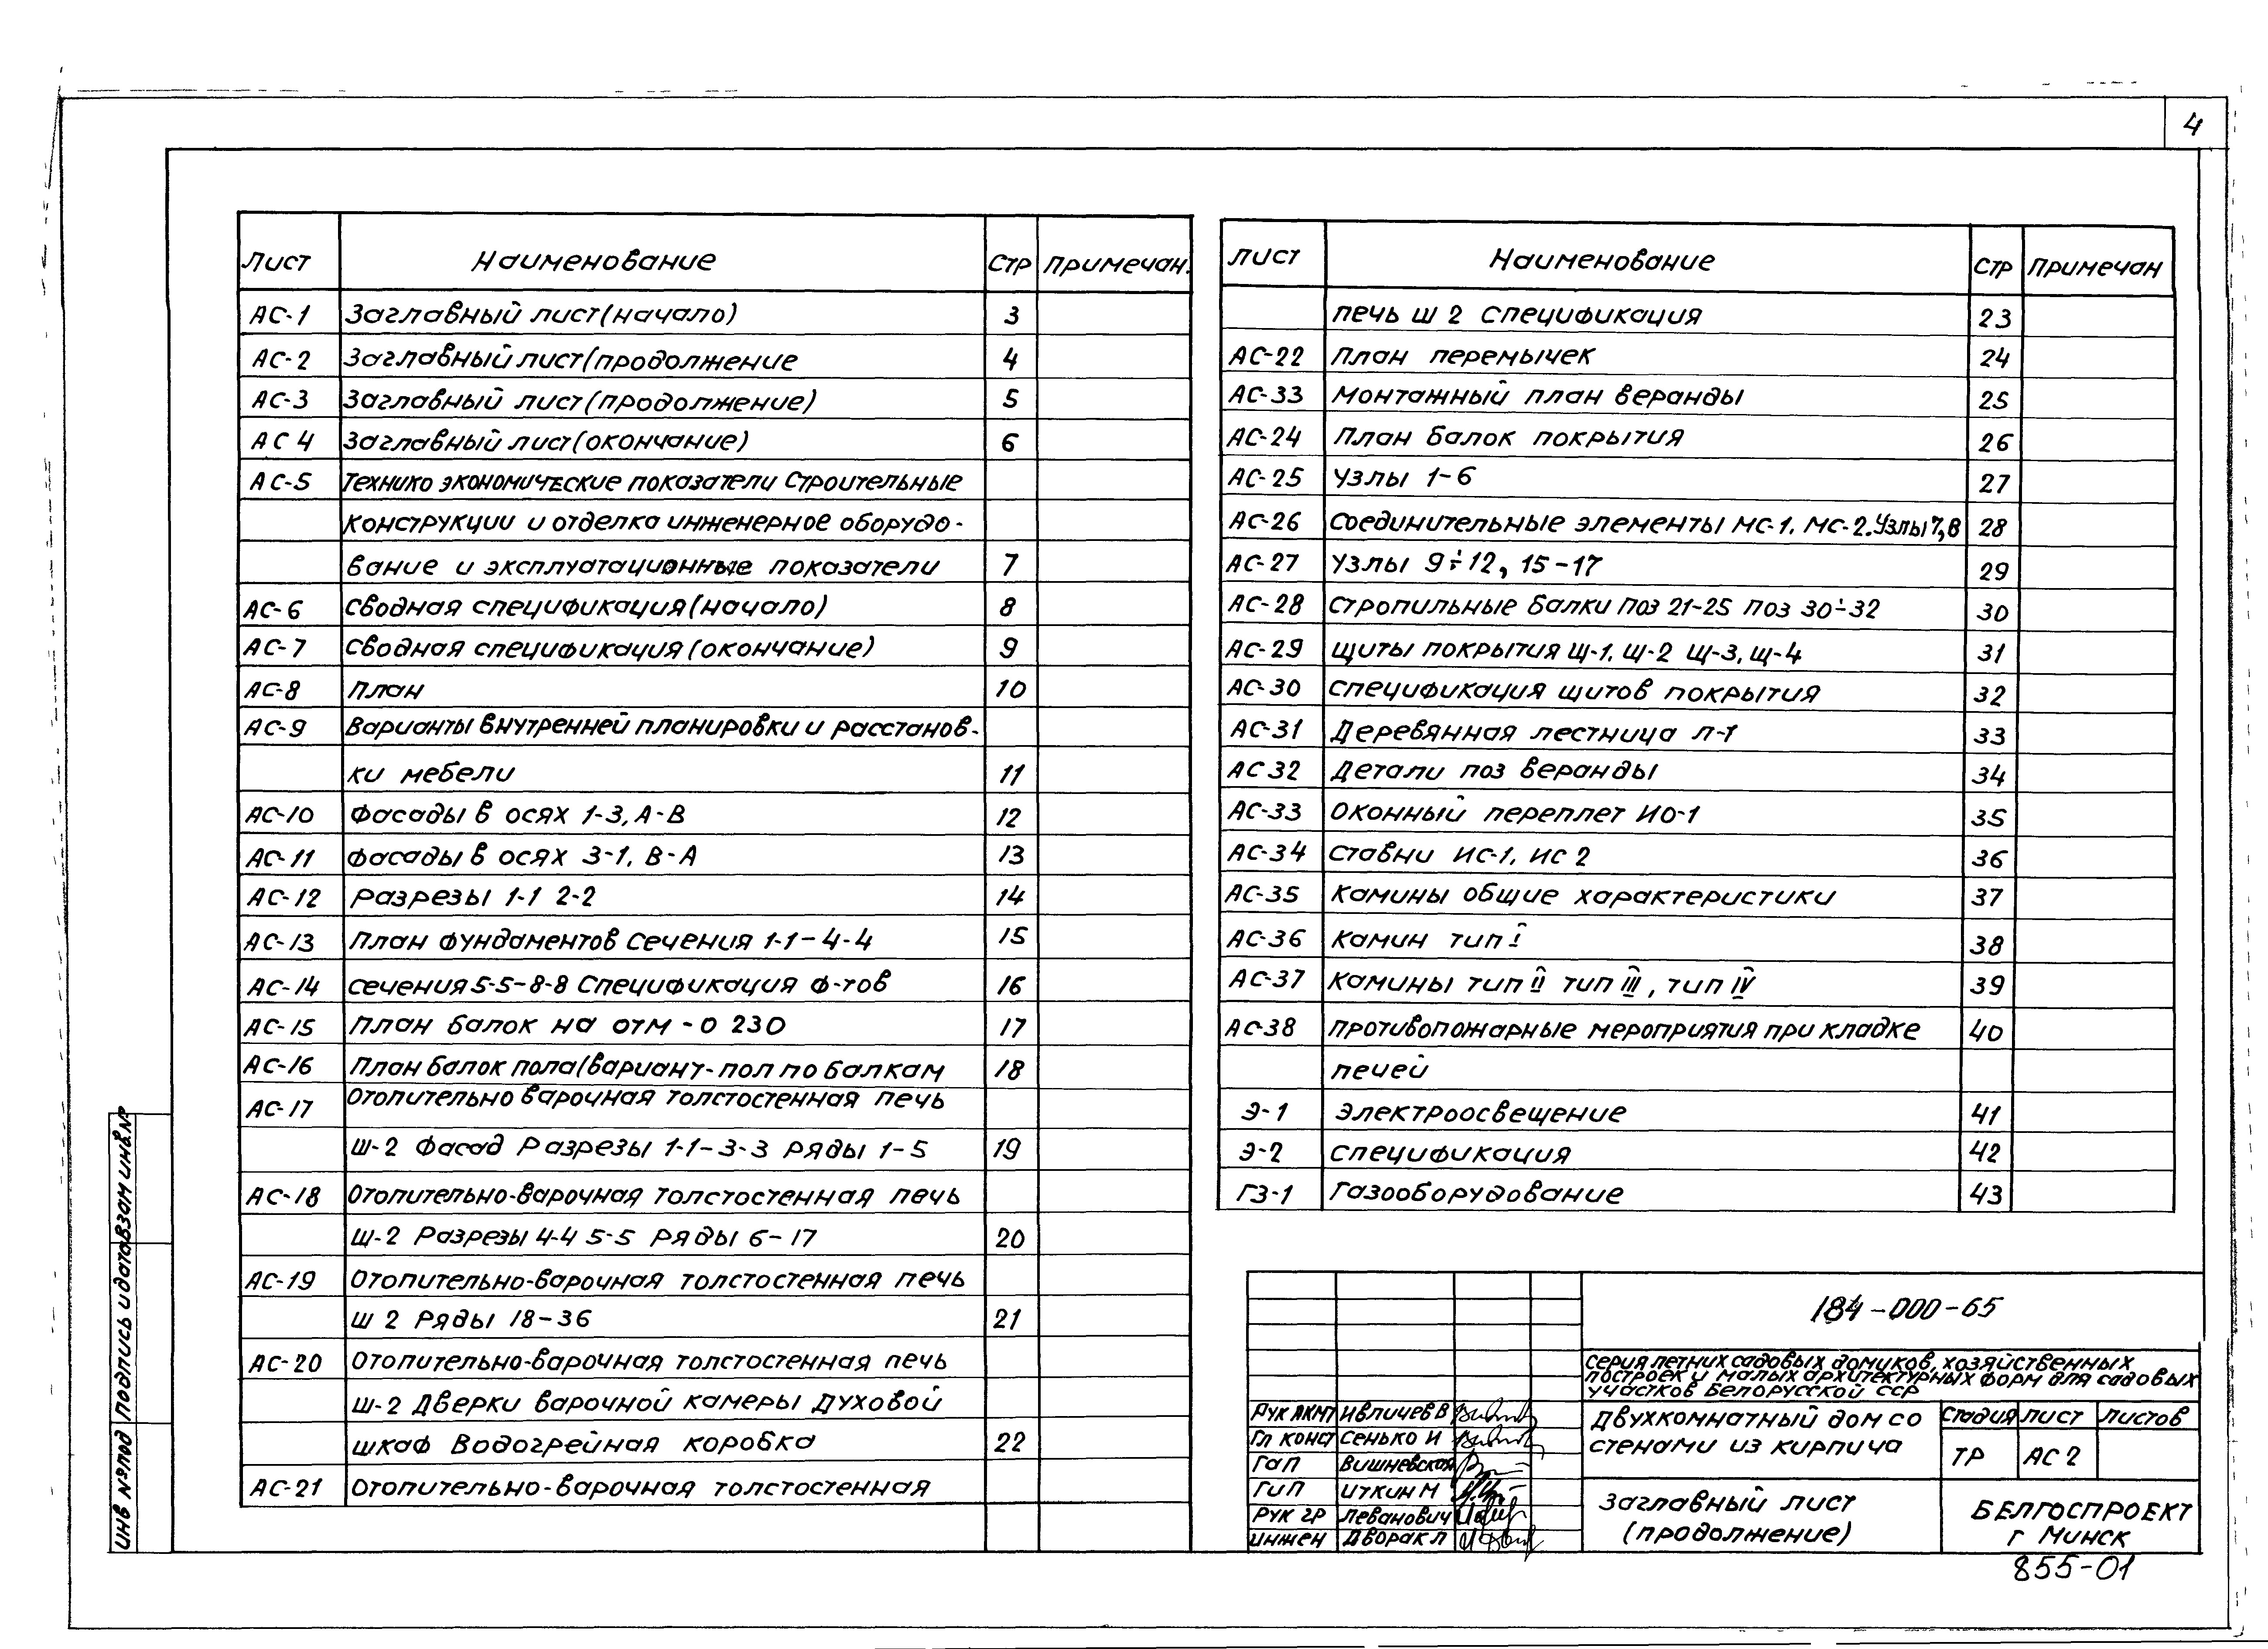 4
Лист Наименование Стр Примечан.
АС-1 Заглавный лист(начало) 3
АС-2 Заглавный лист(продолжение 4
АС-3 Заглавный лист(продолжение) 5
АС 4 Заглавный лист(окончание) 6
АС-5 Технико экономические показатели Строительные
конструкции и отделка инженерное оборудо-
вание и эксплуатационные показатели 7
АС-6 Сводная спецификация(начало) 8
АС-7 Сводная спецификация(окончание) 9
АС-8 План 10
АС-9 Варианты внутренней планировки и расстанов-
ки мебели 11
АС-10 Фасады в осях 1-3, А-В 12
АС-11 Фасады в осях 3-1, В-А 13
АС-12 Разрезы 1-1 2-2 14
АС-13 План фундаментов Сечения 1-1-4-4 15
АС-14 Сечения 5-5-8-8 Спецификация ф-тов 16
АС-15 План балок на отм -0 230 17
АС-16 План балок пола(вариант-пол по балкам 18
АС-17 Отопительно варочная толстостенная печь
Ш-2 Фасад Разрезы 1-1-3-3 Ряды 1-5 19
АС-18 Отопительно-варочная толстостенная печь
Ш-2 Разрезы 4-4 5-5 Ряды 6-17 20
АС-19 Отопительно-варочная толстостенная печь
Ш 2 Ряды 18-36 21
АС-20 Отопительно-варочная толстостенная печь
Ш-2 Дверки варочной камеры Духовой
шкаф Водогрейная коробка 22
АС-21 Отопительно-варочная толстостенная
Лист Наименование Стр Примечан
печь Ш 2 Спецификация 23
АС-22 План перемычек 24
АС-33 Монтажный план веранды 25
АС-24 План балок покрытия 26
АС-25 Узлы 1-6 27
АС-26 Соединительные элементы МС-1, МС-2. Узлы 7,8 28
АС-27 Узлы 9÷12, 15-17 29
АС-28 Стропильные балки поз 21-25 поз 30÷32 30
АС-29 Щиты покрытия Щ-1, Щ-2 Щ-3, Щ-4 31
АС-30 Спецификация щитов покрытия 32
АС-31 Деревянная лестница Л-1 33
АС 32 Детали поз веранды 34
АС-33 Оконный переплет ИО-1 35
АС-34 Ставни ИС-1, ИС 2 36
АС-35 Камины общие характеристики 37
АС-36 Камин тип I 38
АС-37 Камины тип II тип III, тип IV 39
АС-38 Противопожарные мероприятия при кладке 40
печей
Э-1 Электроосвещение 41
Э-2 Спецификация 42
ГЗ-1 Газооборудование 43
184-000-65
Серия летних садовых домиков, хозяйственных
построек и малых архитектурных форм для садовых
участков Белорусской ССР
Рук АКМП Ивличев В
Гл конст Сенько И
ГАП Вишневская
ГИП Иткин М
Рук гр Леванович
Инжен Дворак Л
Двухкомнатный дом со
стенами из кирпича
Стадия Лист Листов
ТР АС 2
Заглавный лист
(продолжение)
БЕЛГОСПРОЕКТ
г Минск
855-01
Инв № под Подпись и дата Взам инв.№